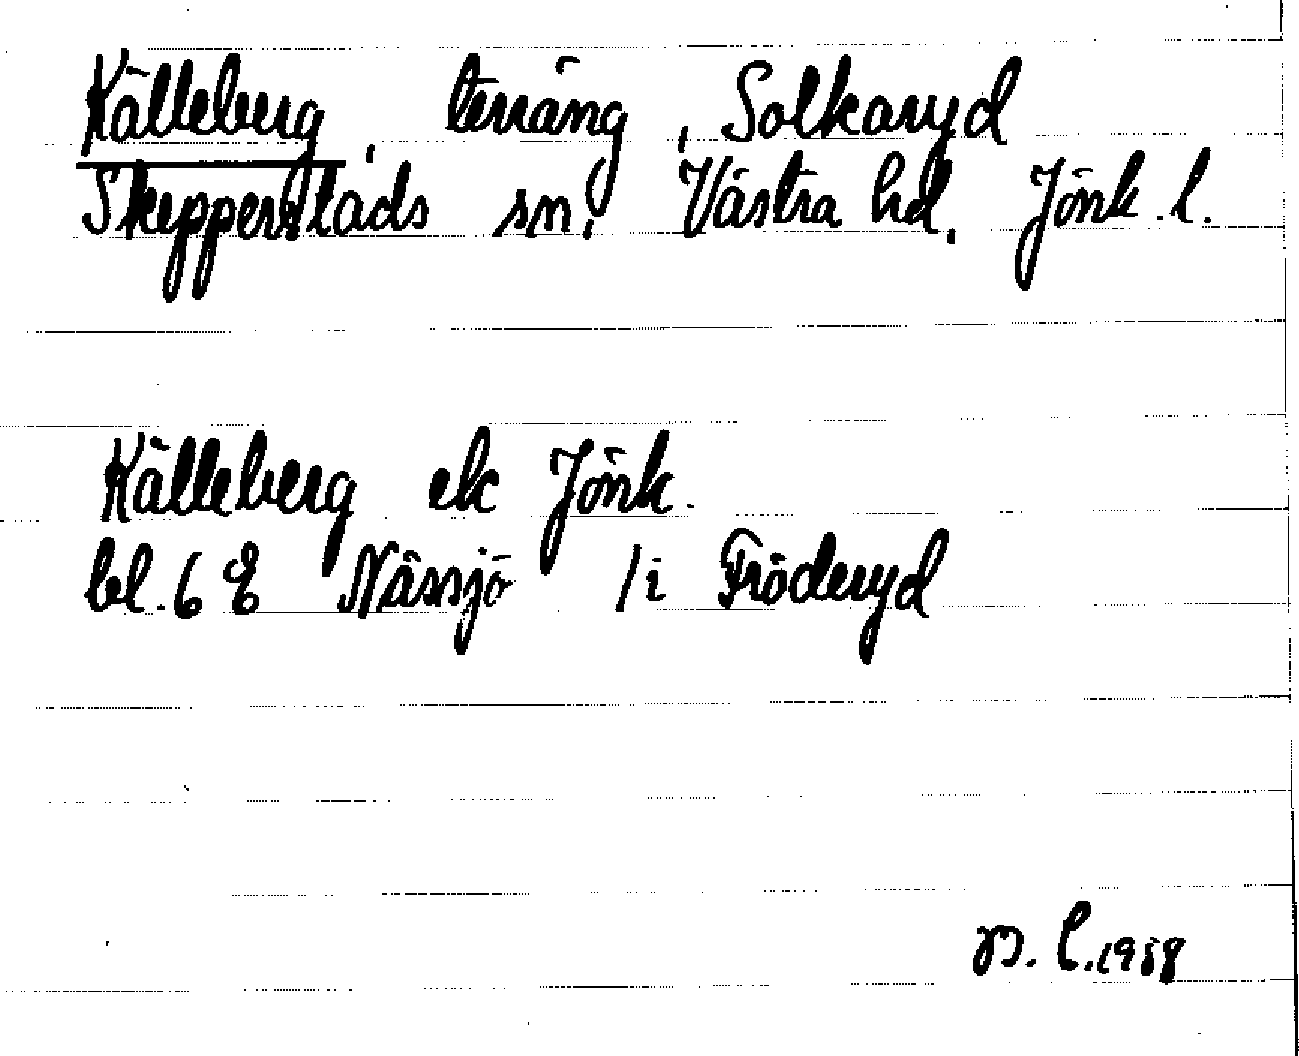 Källeberg, terräng, Solkaryd
Skepperstads sn, Västra hd. Jönk. l.
Källeberg ek Jönk.
bl. 6 E Nässjö /i Fröderyd
B. L. 1958